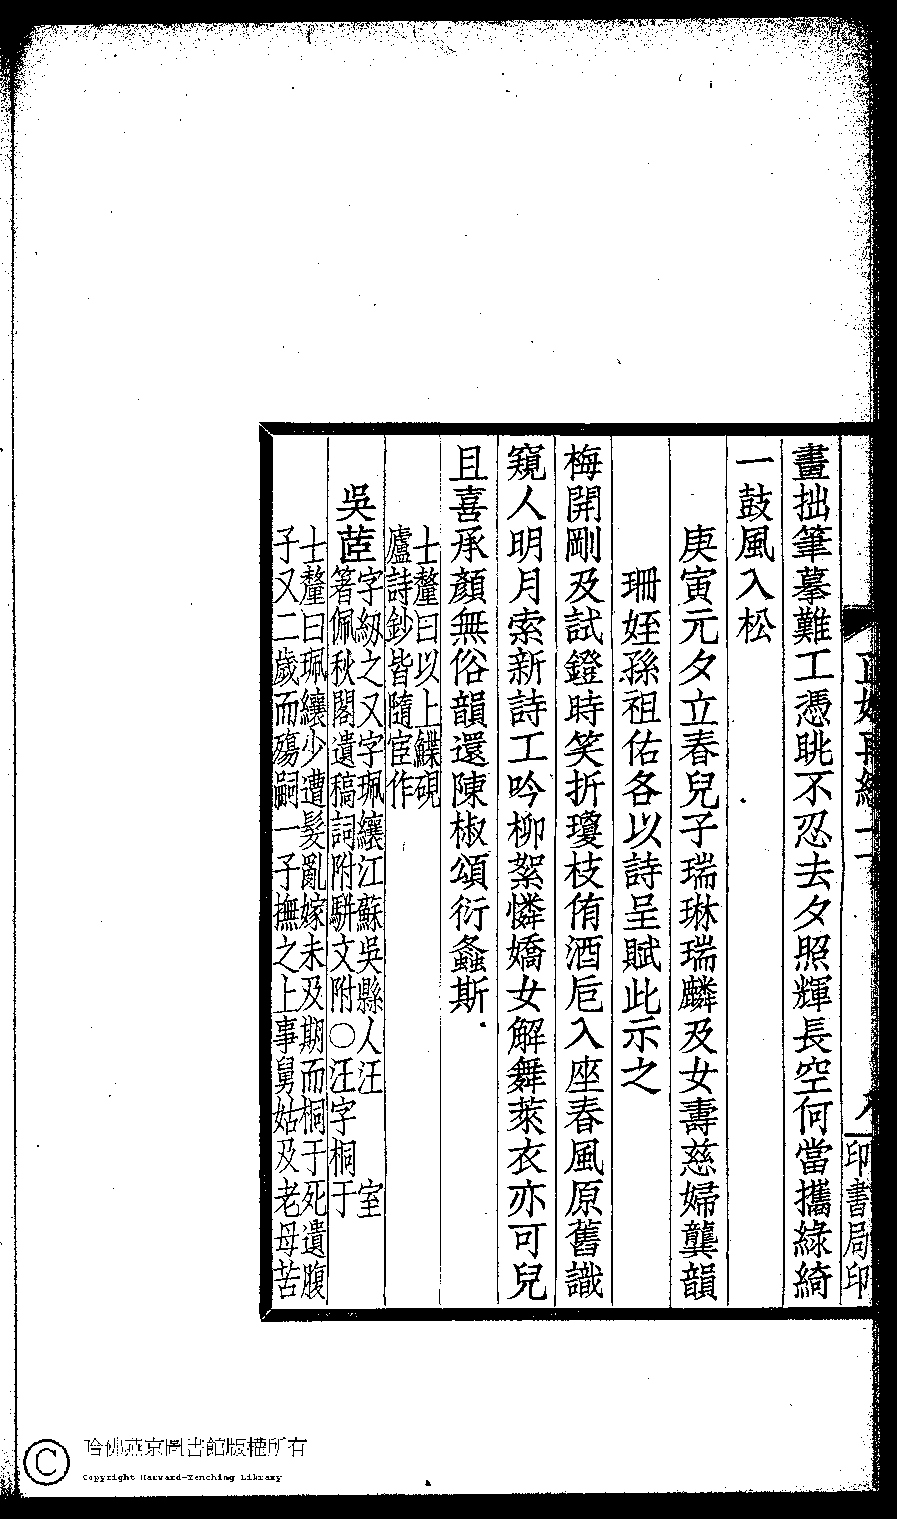 印書局印
畫拙筆摹難工憑眺不忍去夕照輝長空何當攜綠綺
一鼓風入松
庚寅元夕立春兒子瑞琳瑞麟及女壽慈婦龔韻
珊姪孫祖佑各以詩呈賦此示之
梅開剛及試鐙時笑折瓊枝侑酒卮入座春風原舊識
窺人明月索新詩工吟柳絮憐嬌女解舞萊衣亦可兒
且喜承顏無俗韻還陳椒頌衍螽斯
士釐曰以上鰈硯
廬詩鈔皆隨宦作
吳茝
字紉之又字珮纕江蘇吳縣人汪 室
著佩秋閣遺稿詞附駢文附〇汪字桐于
士釐曰珮纕少遭髮亂嫁未及期而桐于死遺腹
子又二歲而殤嗣一子撫之上事舅姑及老母苦
哈佛燕京圖書館版權所有
Copyright Harvard-Yenching Library